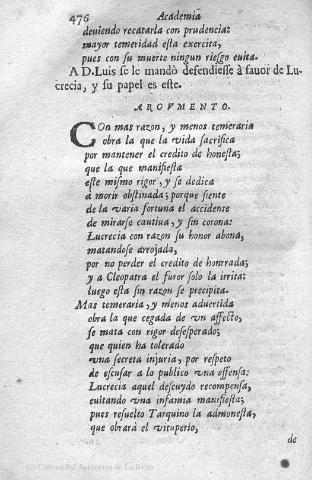 476 Academia
deuiendo recatarla con prudencia:
mayor temeridad esta exercita,
pues con su muerte ningun riesgo euita.
A D. Luis se le mandò defendiesse à fauor de Lu-
crecia, y su papel es este.
ARGVMENTO.
COn mas razon, y menos temeraria
obra la que la vida sacrifica
por mantener el credito de honesta;
que la que manifiesta
este mismo rigor, y se dedica
a morir obstinada; porque siente
de la varia fortuna el accidente
de mirarse cautiua, y sin corona:
Lucrecia con razon su honor abona,
matandose arrojada,
por no perder el credito de honrrada;
y a Cleopatra el furor solo la irrita:
luego esta sin razon se precipita.
Mas temeraria, y menos aduertida
obra la que cegada de vn affecto,
se mata con rigor desesperado;
que quien ha tolerado
vna secreta injuria, por respeto
de escusar a lo publico vna offensa:
Lucrecia aquel descuydo recompensa,
euitando vna infamia manifiesta;
pues resuelto Tarquino la admonesta,
que obrarà el vituperio,
de
(c) Comunidad Autónoma de La Rioja